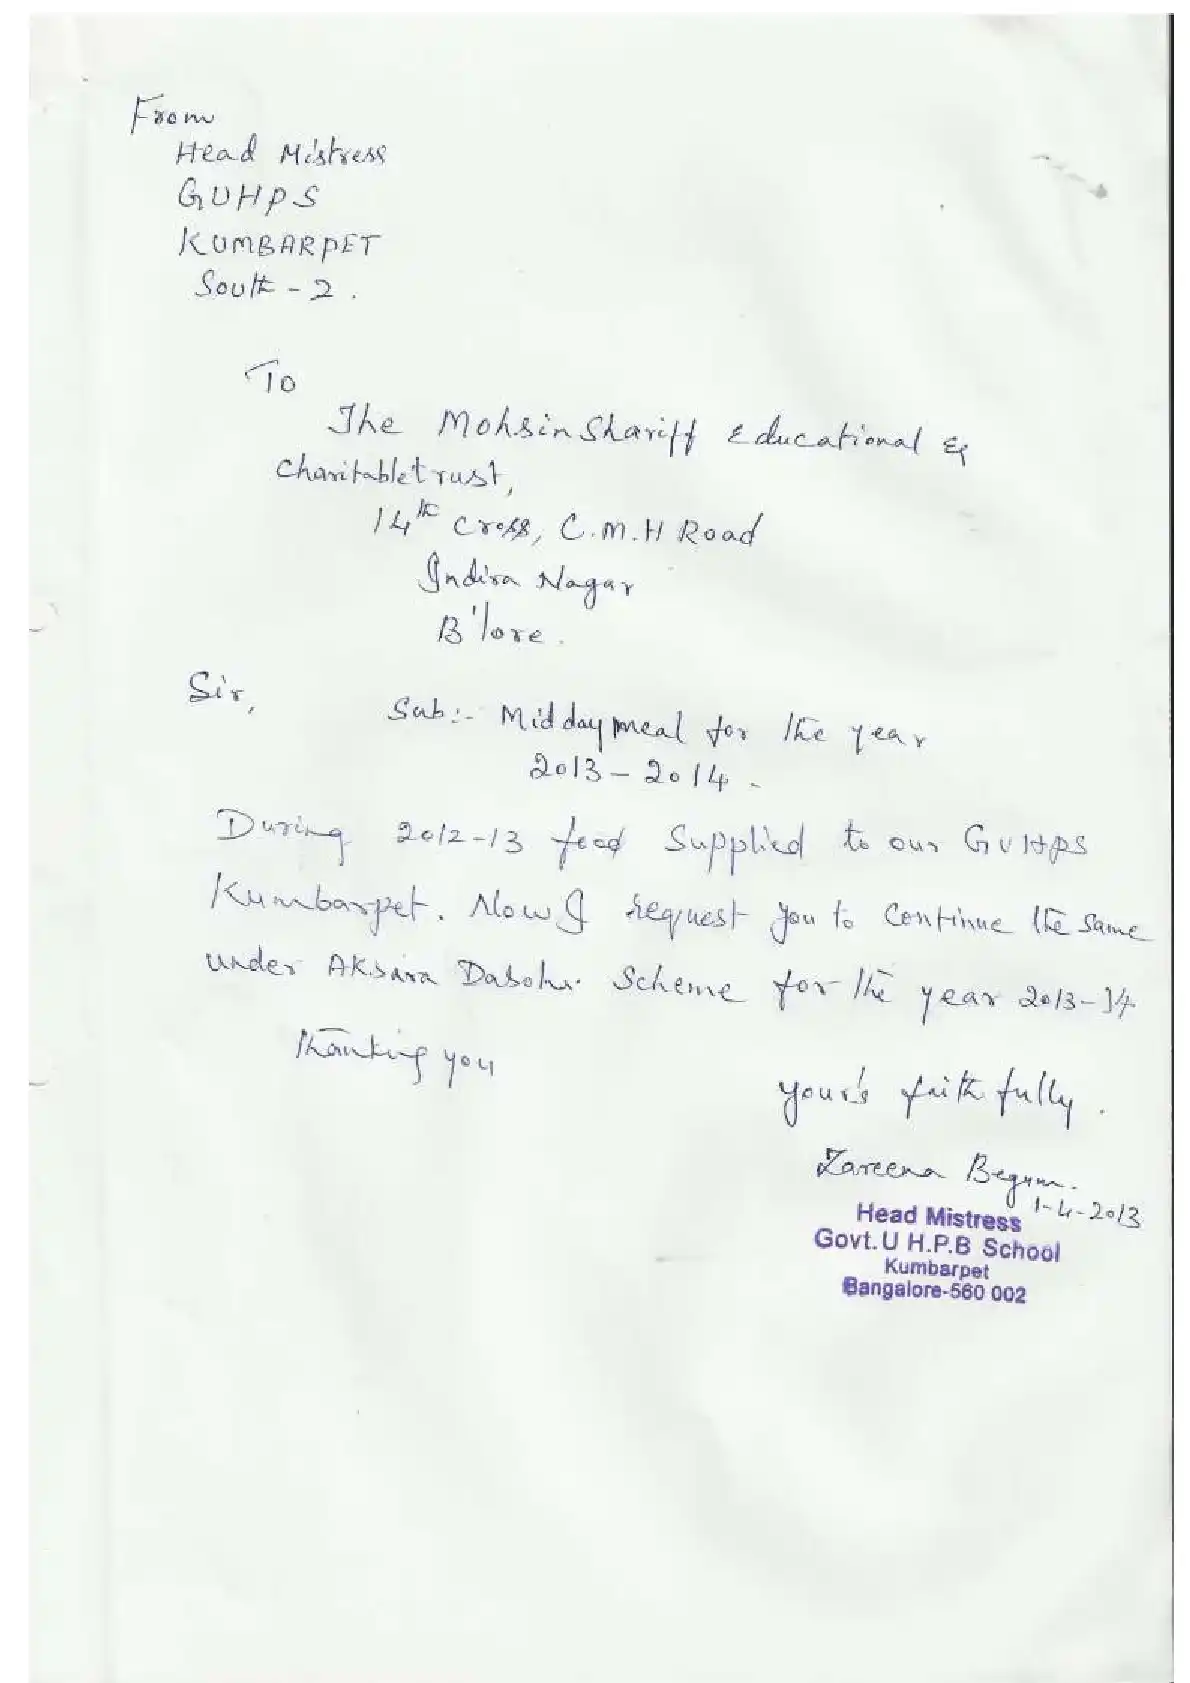 From
Head Mistress
GUHPS
KUMBARPET
South - 2.
To
The Mohsin Shariff Educational &
Charitable trust,
14th Cross, C.M.H Road
Indira Nagar
B'lore.
Sir,
Sub:- Midday meal for the year
2013 - 2014 -
During 2012-13 food Supplied to our GUHPS
Kumbarpet. Now I request you to Continue the same
under Aksara Dasoha Scheme for the year 2013-14
Thanking you
Your's faithfully.
Zareena Begum.
1-4-2013
Head Mistress
Govt. U H.P.B School
Kumbarpet
Bangalore-560 002